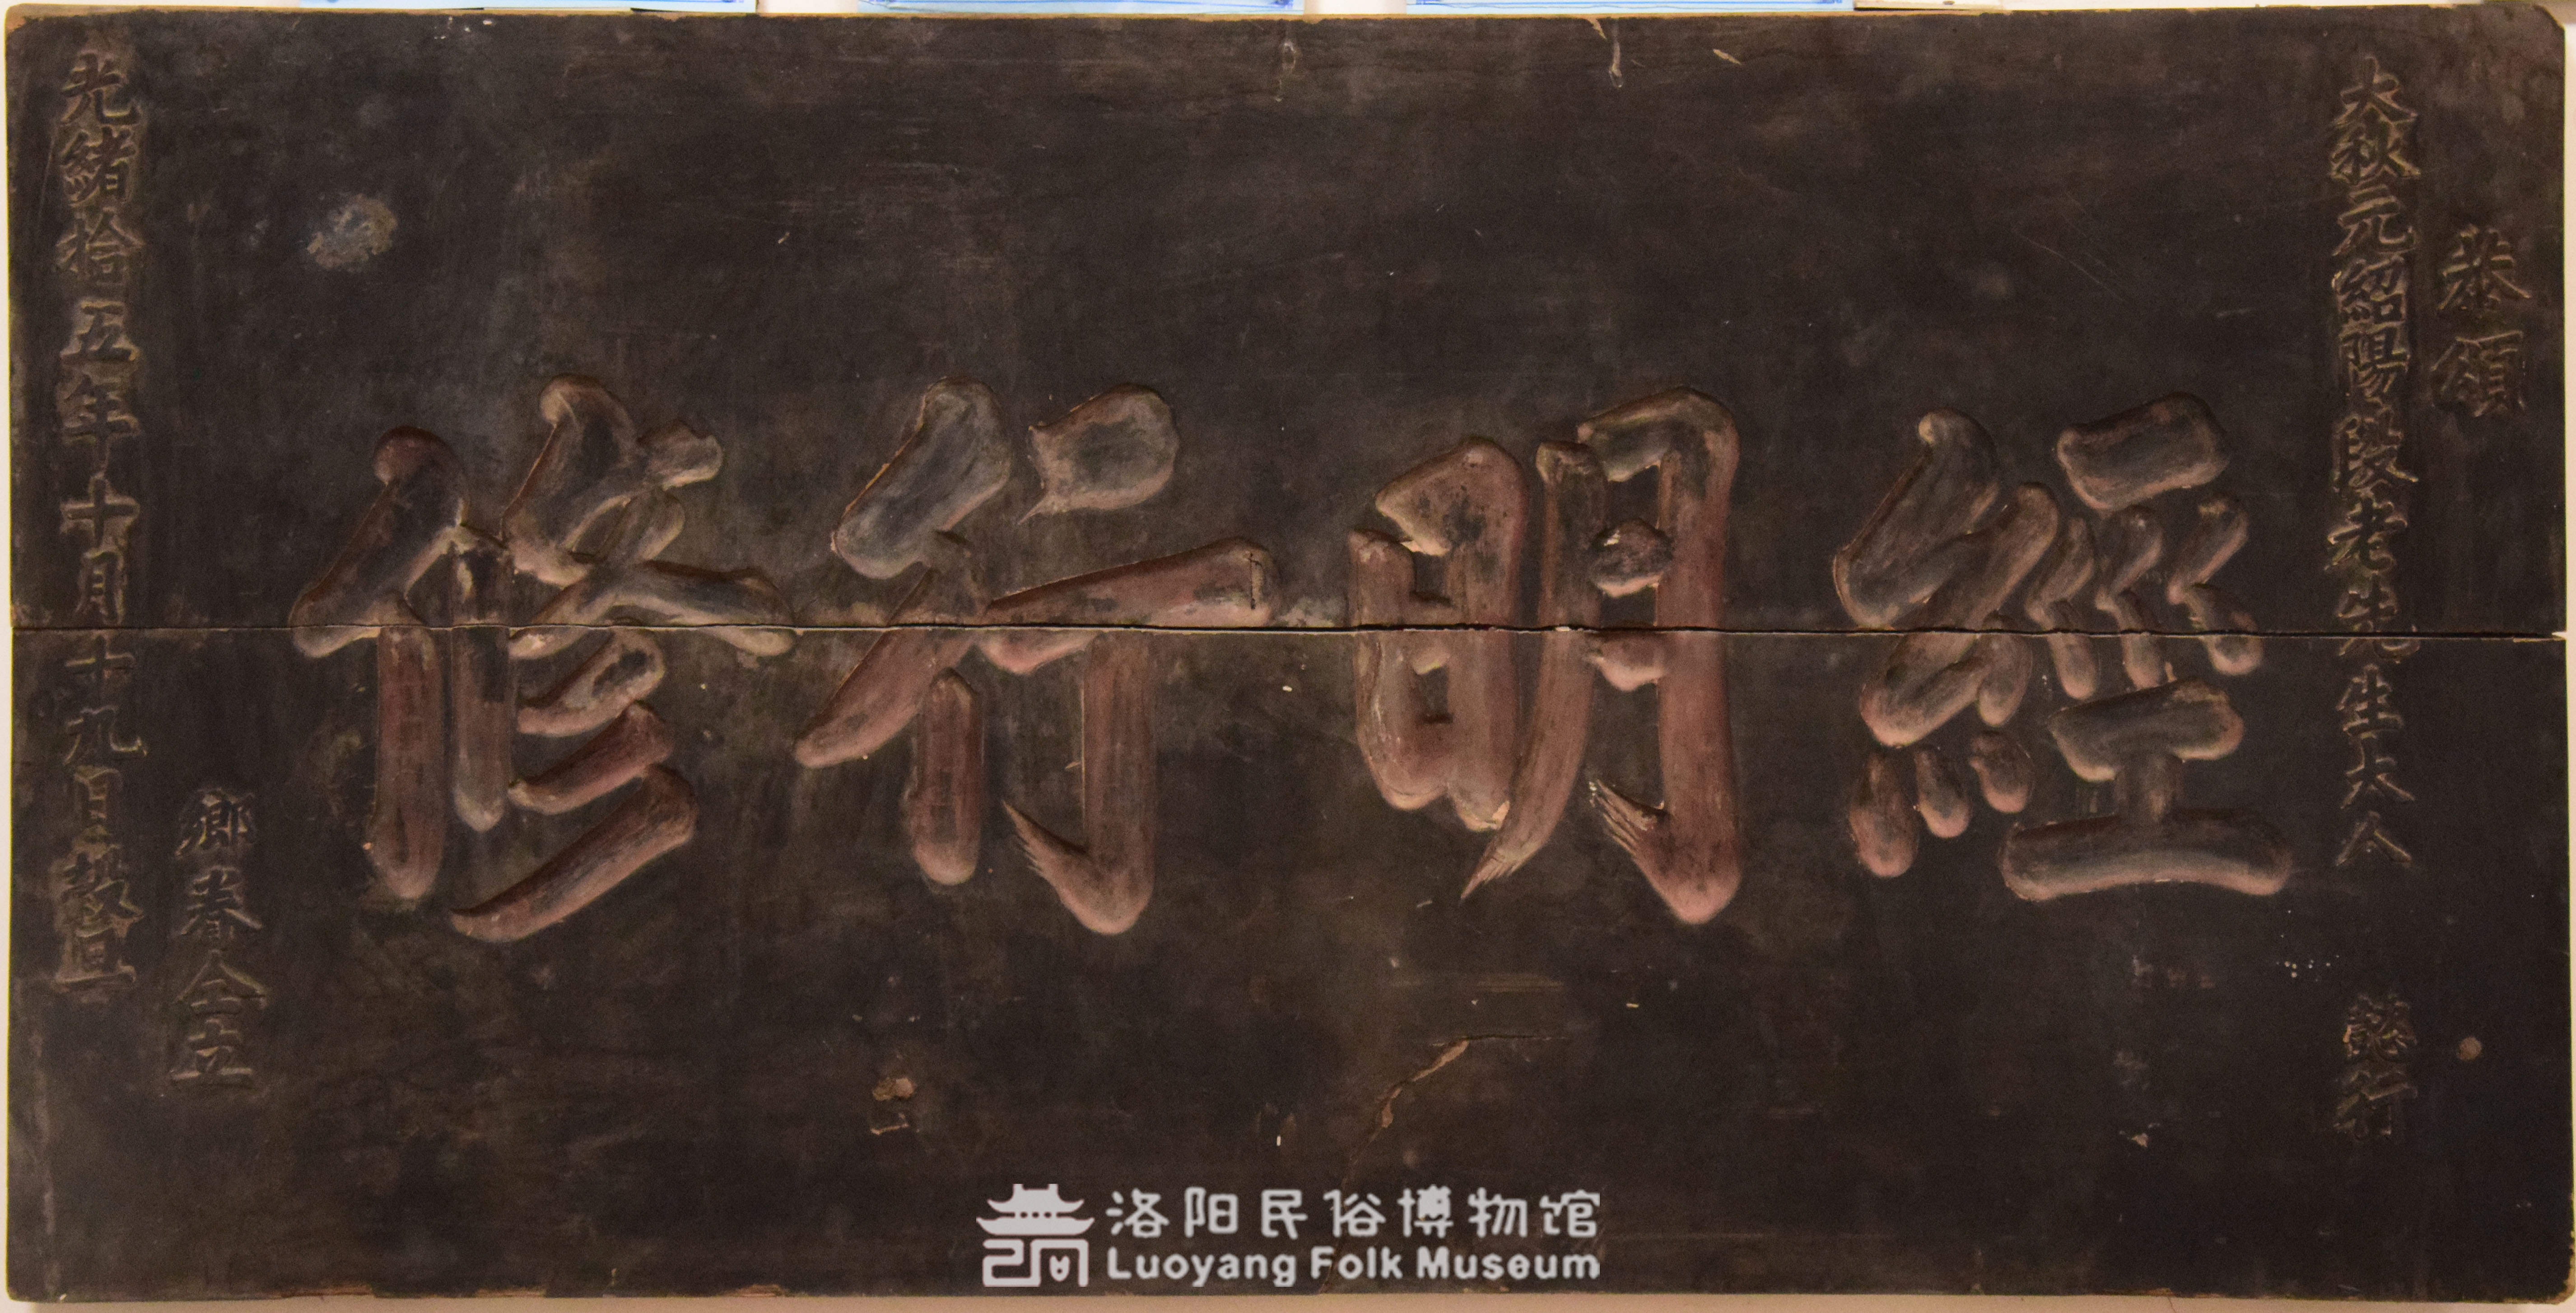 恭頌
大秋元紹陽段老先生大人 懿行
經明行修
鄉眷仝立
光緒拾五年十月十九日穀旦
洛阳民俗博物馆
Luoyang Folk Museum